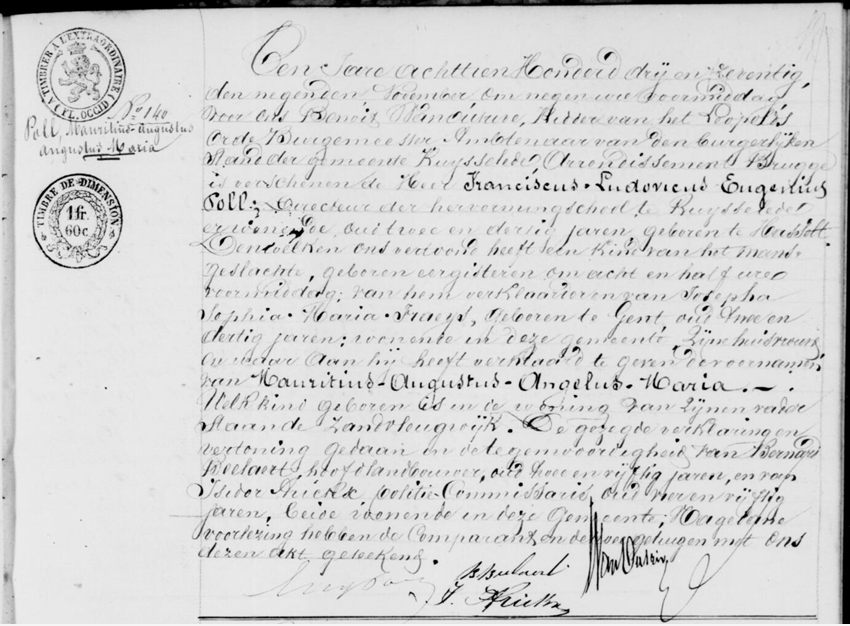 TIMBRE A L'EXTRAORDINAIRE
(FL. OCCID.)
No 140
Poll, Mauritius-Augustus
Angelus Maria
TIMBRE DE DIMENSION
1 fr.
60 c.
Een Jare achttien Honderd drij en Zeventig,
den negenden November om negen ure voormiddag
voor ons Benoit Ridder van het Leopold's
Orde Burgemeester Ambtenaar van den burgerlijken
Stand der gemeente Ruysselede Arrondissement Brugge
is verschenen de Heer Franciscus-Ludovicus-Eugenius
Poll; Directeur der hervormingschool te Ruysselede
er wonende, oud twee en dertig jaren, geboren te Hasselt
Denwelken ons vertoond heeft een kind van het mans-
geslachte, geboren eergisteren om acht en half ure
voormiddag; van hem verklaarder en van Josepha
Sophia-Maria-Fraeys, geboren te Gent oud twee en
dertig jaren; wonende in deze gemeente, Zijne huisvrouw
en waar aan hij heeft verklaard te geven de voornamen
van Mauritius-Augustus-Angelus-Maria. -.
Welk kind geboren is in de woning van Zijnen vader
Staande Zandvleugwijk. De gezegde verklaring en
vertoning gedaan in de tegenwoordigheid van Bernard
hoofdlandbouwer, oud twee en vijftig jaren, en van
Isidor politie-Commissaris oud vier en vijftig
jaren, beide wonende in deze Gemeente; Nagedane
voorlezing hebben de Comparant en de getuigen met ons
dezen akt geteekend.